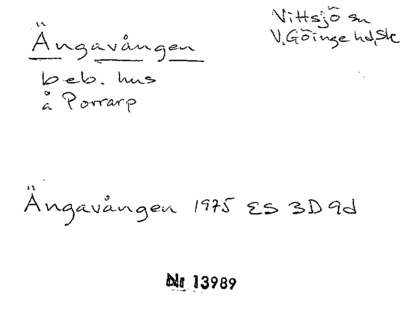 Ängavången
Vittsjö sn
V. Göinge hd, Sk
beb. hus
å Porrarp
Ängavången 1975 ES 3D 9d
Nr 13989